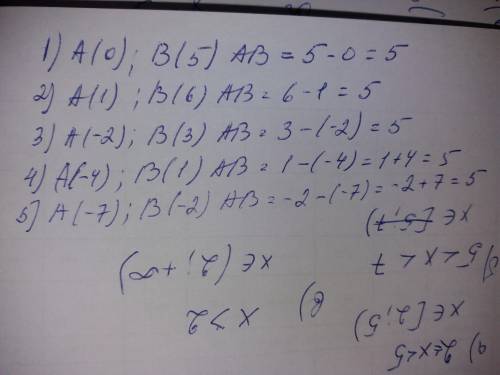 1) A(0); B(5) AB = 5-0 = 5
2) A(1); B(6) AB = 6-1 = 5
3) A(-2); B(3) AB = 3-(-2) = 5
4) A(-4); B(1) AB = 1-(-4) = 1+4 = 5
5) A(-7); B(-2) AB = -2-(-7) = -2+7 = 5
a) 2≤x<5
x∈[2;5)
б) x>2
x∈(2;+∞)
5<x<7
x∈[5;7)